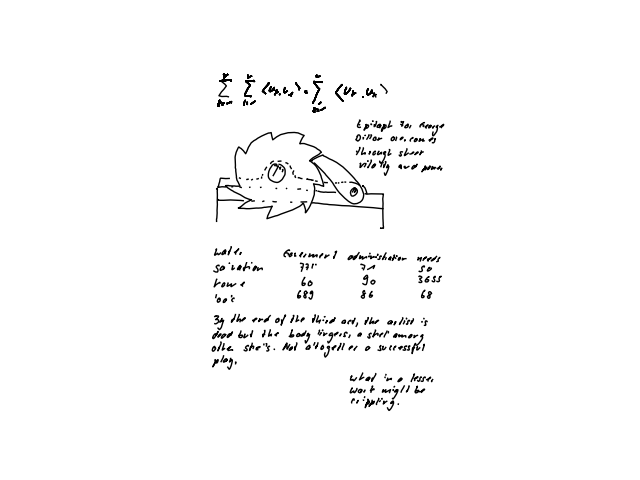 Epitaph For George
Dillon overcomes
through sheer
vitality and power
water Government administration needs
salvation 771 71 50
towne 60 90 3655
689 86 68
By the end of the third act, the artist is
dead but the body lingers, a shell among
other shells. Not altogether a successful
play.
what in a lesser
work might be
crippling.